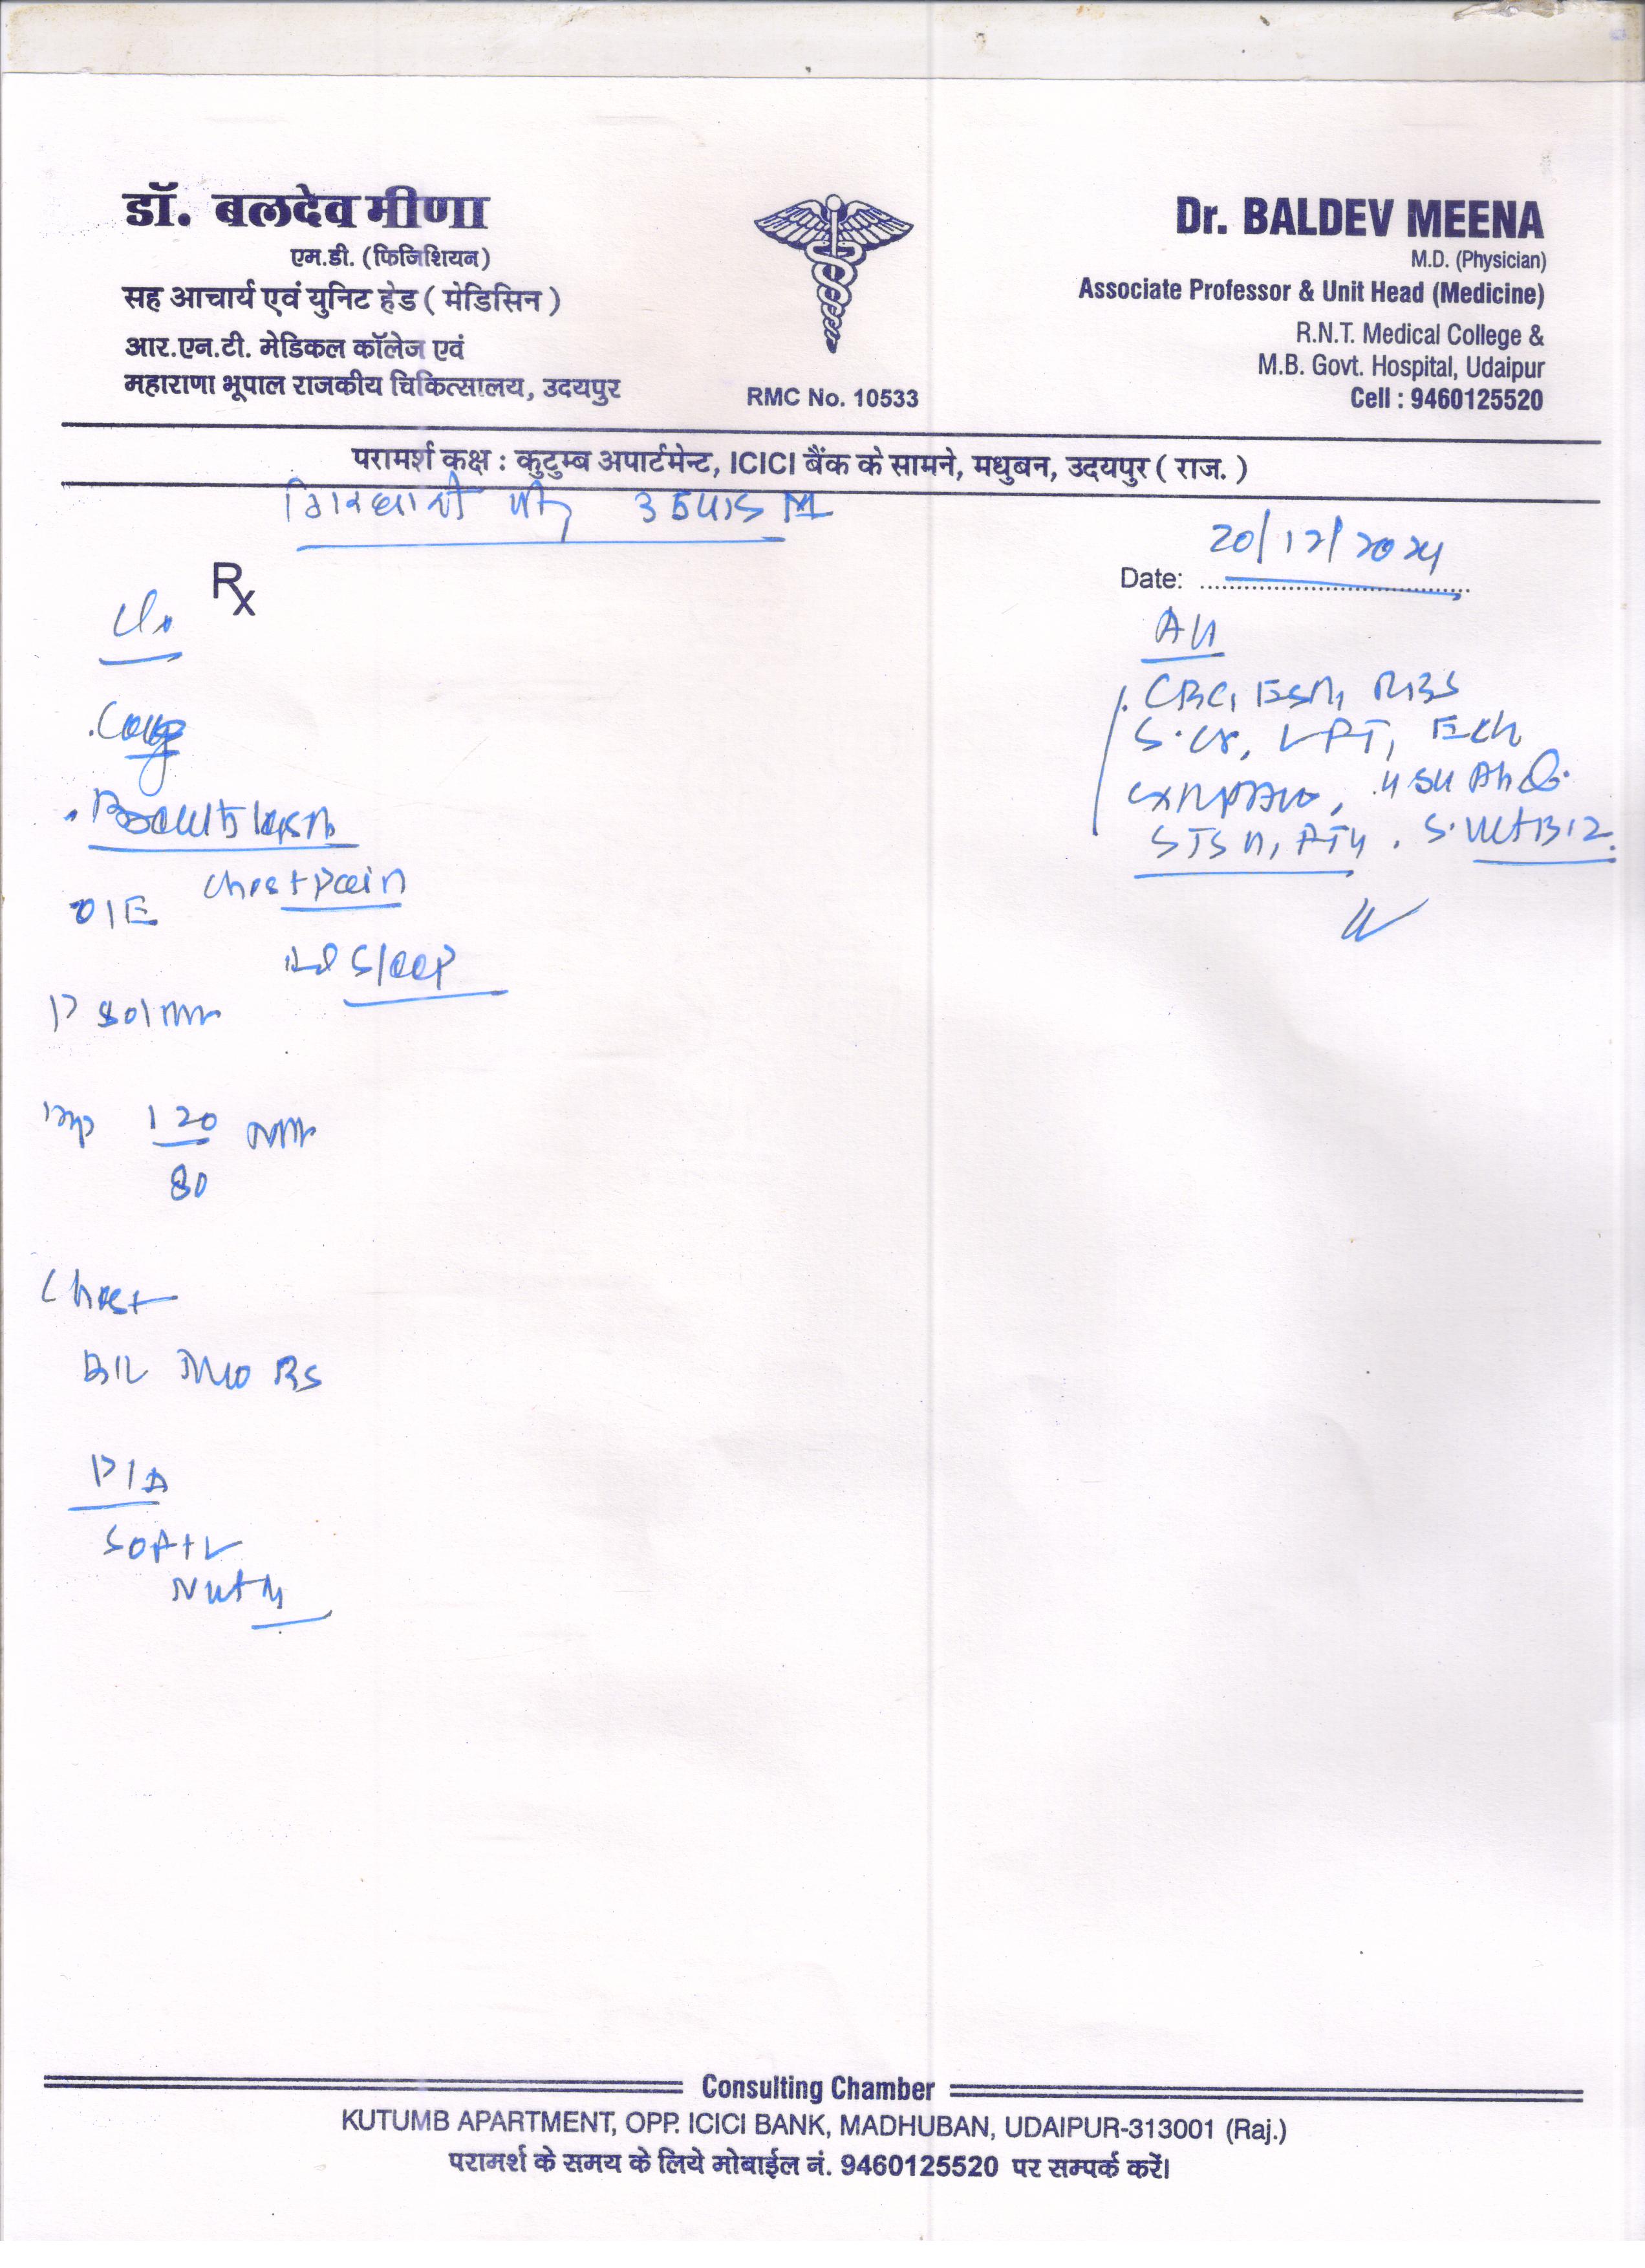 डॉ. बलदेव मीणा
एम.डी. (फिजिशियन)
सह आचार्य एवं युनिट हेड ( मेडिसिन )
आर.एन.टी. मेडिकल कॉलेज एवं
महाराणा भूपाल राजकीय चिकित्सालय, उदयपुर
RMC No. 10533
Dr. BALDEV MEENA
M.D. (Physician)
Associate Professor & Unit Head (Medicine)
R.N.T. Medical College &
M.B. Govt. Hospital, Udaipur
Cell : 9460125520
परामर्श कक्ष : कुटुम्ब अपार्टमेन्ट, ICICI बैंक के सामने, मधुबन, उदयपुर ( राज. )
M
20/12/2024
Date:
Rx
CBC, ESR, RBS
S.Cr, LFT, ECG
S. Vit B12
Chest pain
O/E
Sleep
P 80/mm
120
80
Chest
B/L RS
P/A
Soft
Consulting Chamber
KUTUMB APARTMENT, OPP. ICICI BANK, MADHUBAN, UDAIPUR-313001 (Raj.)
परामर्श के समय के लिये मोबाईल नं. 9460125520 पर सम्पर्क करें।